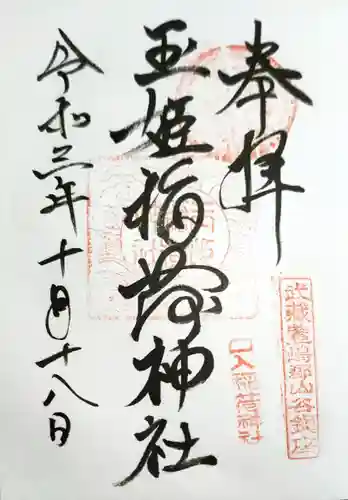 奉拝
武蔵豊嶋郡山谷鎮座
口入稲荷神社
玉姫稲荷神社
令和三年十月十八日